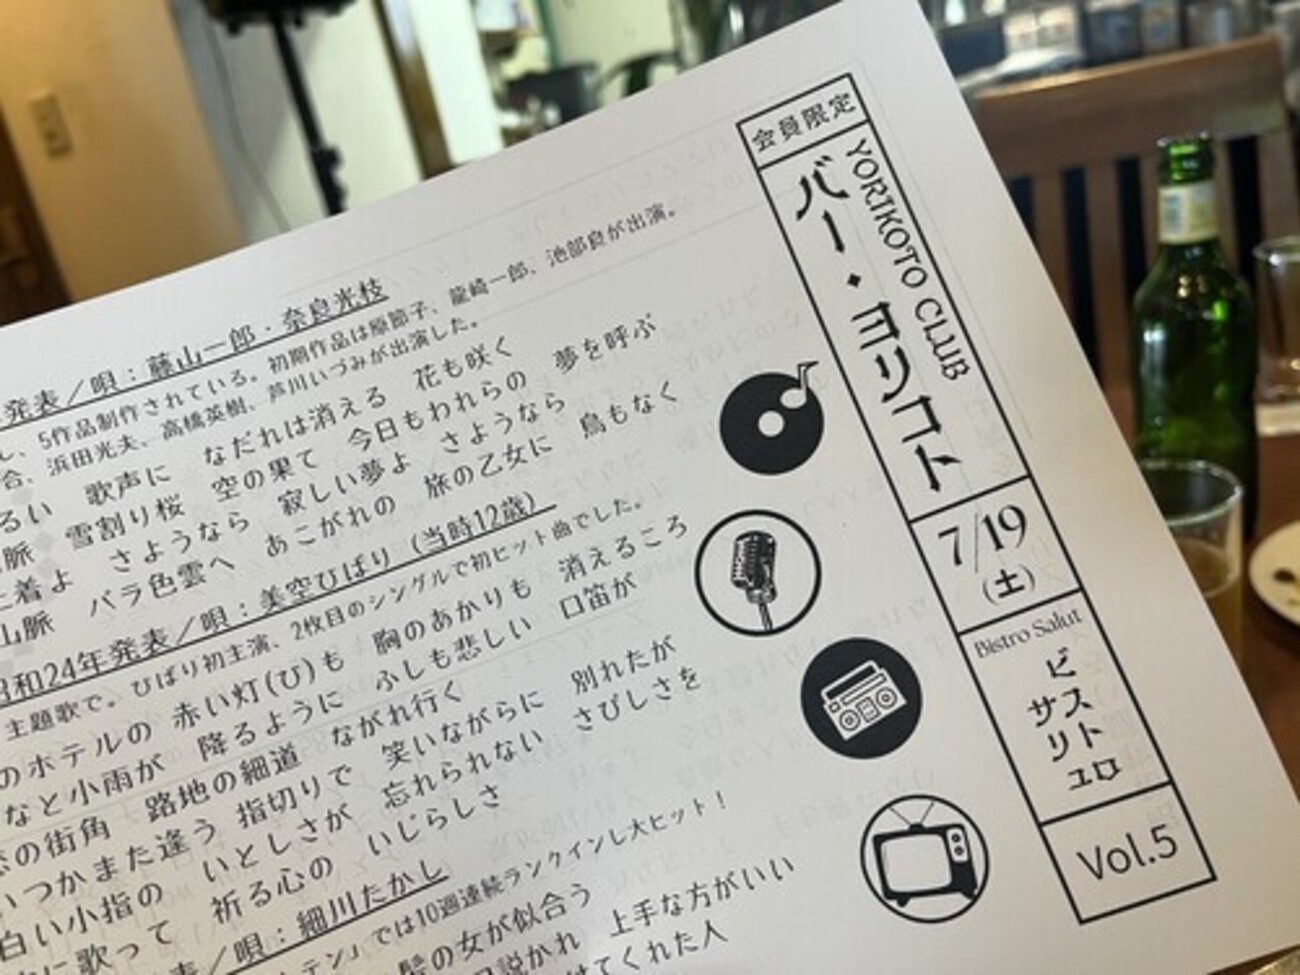 会員限定
YORIKOTO CLUB
バー・ヨリコト
7/19
(土)
Bistro Salut
ビストロ
サリュ
Vol.5
発表／唄：藤山一郎・奈良光枝
し、5作品制作されている。初期作品は原節子、龍崎一郎、池部良が出演。
合、浜田光夫、高橋英樹、芦川いづみが出演した。
るい　歌声に　なだれは消える　花も咲く
脈　雪割り桜　空の果て　今日もわれらの　夢を呼ぶ
着よ　さようなら　寂しい夢よ　さようなら
山脈　バラ色雲へ　あこがれの　旅の乙女に　鳥もなく
和24年発表／唄：美空ひばり（当時12歳）
主題歌で。ひばり初主演、2枚目のシングルで初ヒット曲でした。
のホテルの　赤い灯(ひ)も　胸のあかりも　消えるころ
なと小雨が　降るように　ふしも悲しい　口笛が
の街角　路地の細道　ながれ行く
いつかまた逢う　指切りで　笑いながらに　別れたが
白い小指の　いとしさが　忘れられない　さびしさを
に歌って　祈る心の　いじらしさ
表／唄：細川たかし
テン」では10週連続ランクインし大ヒット！
の女が似合う　上手な方がいい
説かれ
てくれた人